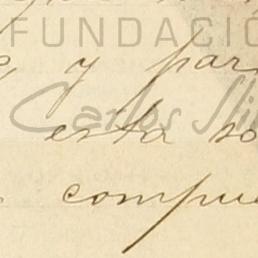 FUNDACIÓ
y par
Carlos Sli
esta so
compu